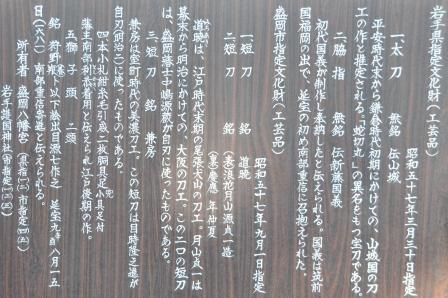 岩手県指定文化財(工芸品)
昭和五十七年三月三十日指定
一 太刀 無銘 伝山城
平安時代末から鎌倉時代初期にかけての、山城国の刀
工の作と推定される。「蛇切丸」の異名をもつ宝刀である。
二 脇指 無銘 伝新藤国義
初代国義が制作し奉納したと伝えられる。国義は筑前
国福岡の出で、延宝の初め南部重信に召抱えられた。
盛岡市指定文化財(工芸品)
昭和五十七年九月一日指定
一 短刀 銘 道暁
二 短刀 銘 (表)浪花月山源貞一造
(裏)慶應 年仲夏
道暁は、江戸時代末期の尾張犬山の刀工。月山貞一は
幕末から明治にかけての、大阪の刀工。この二口の短刀
は、盛岡藩士十嶋源蔵が自刃に使ったものである。
三 短刀 銘 兼房
兼房は室町時代の美濃刀工。この短刀は目時隆之進が
自刃(明治二)に使ったものである。
四 本小札紺糸毛引威二枚胴具足小具足付
藩主南部利 着用と伝えられ江戸後期の作。
五 獅子頭 二頭
銘 狩野 以下絵出目源七作之 延宝九 酉八月一五
日(一六八一) 南部重信寄進と伝えられる。
所有者 盛岡八幡宮(県指一・二 市指定四・五)
岩手護国神社(市指定一・二・三)